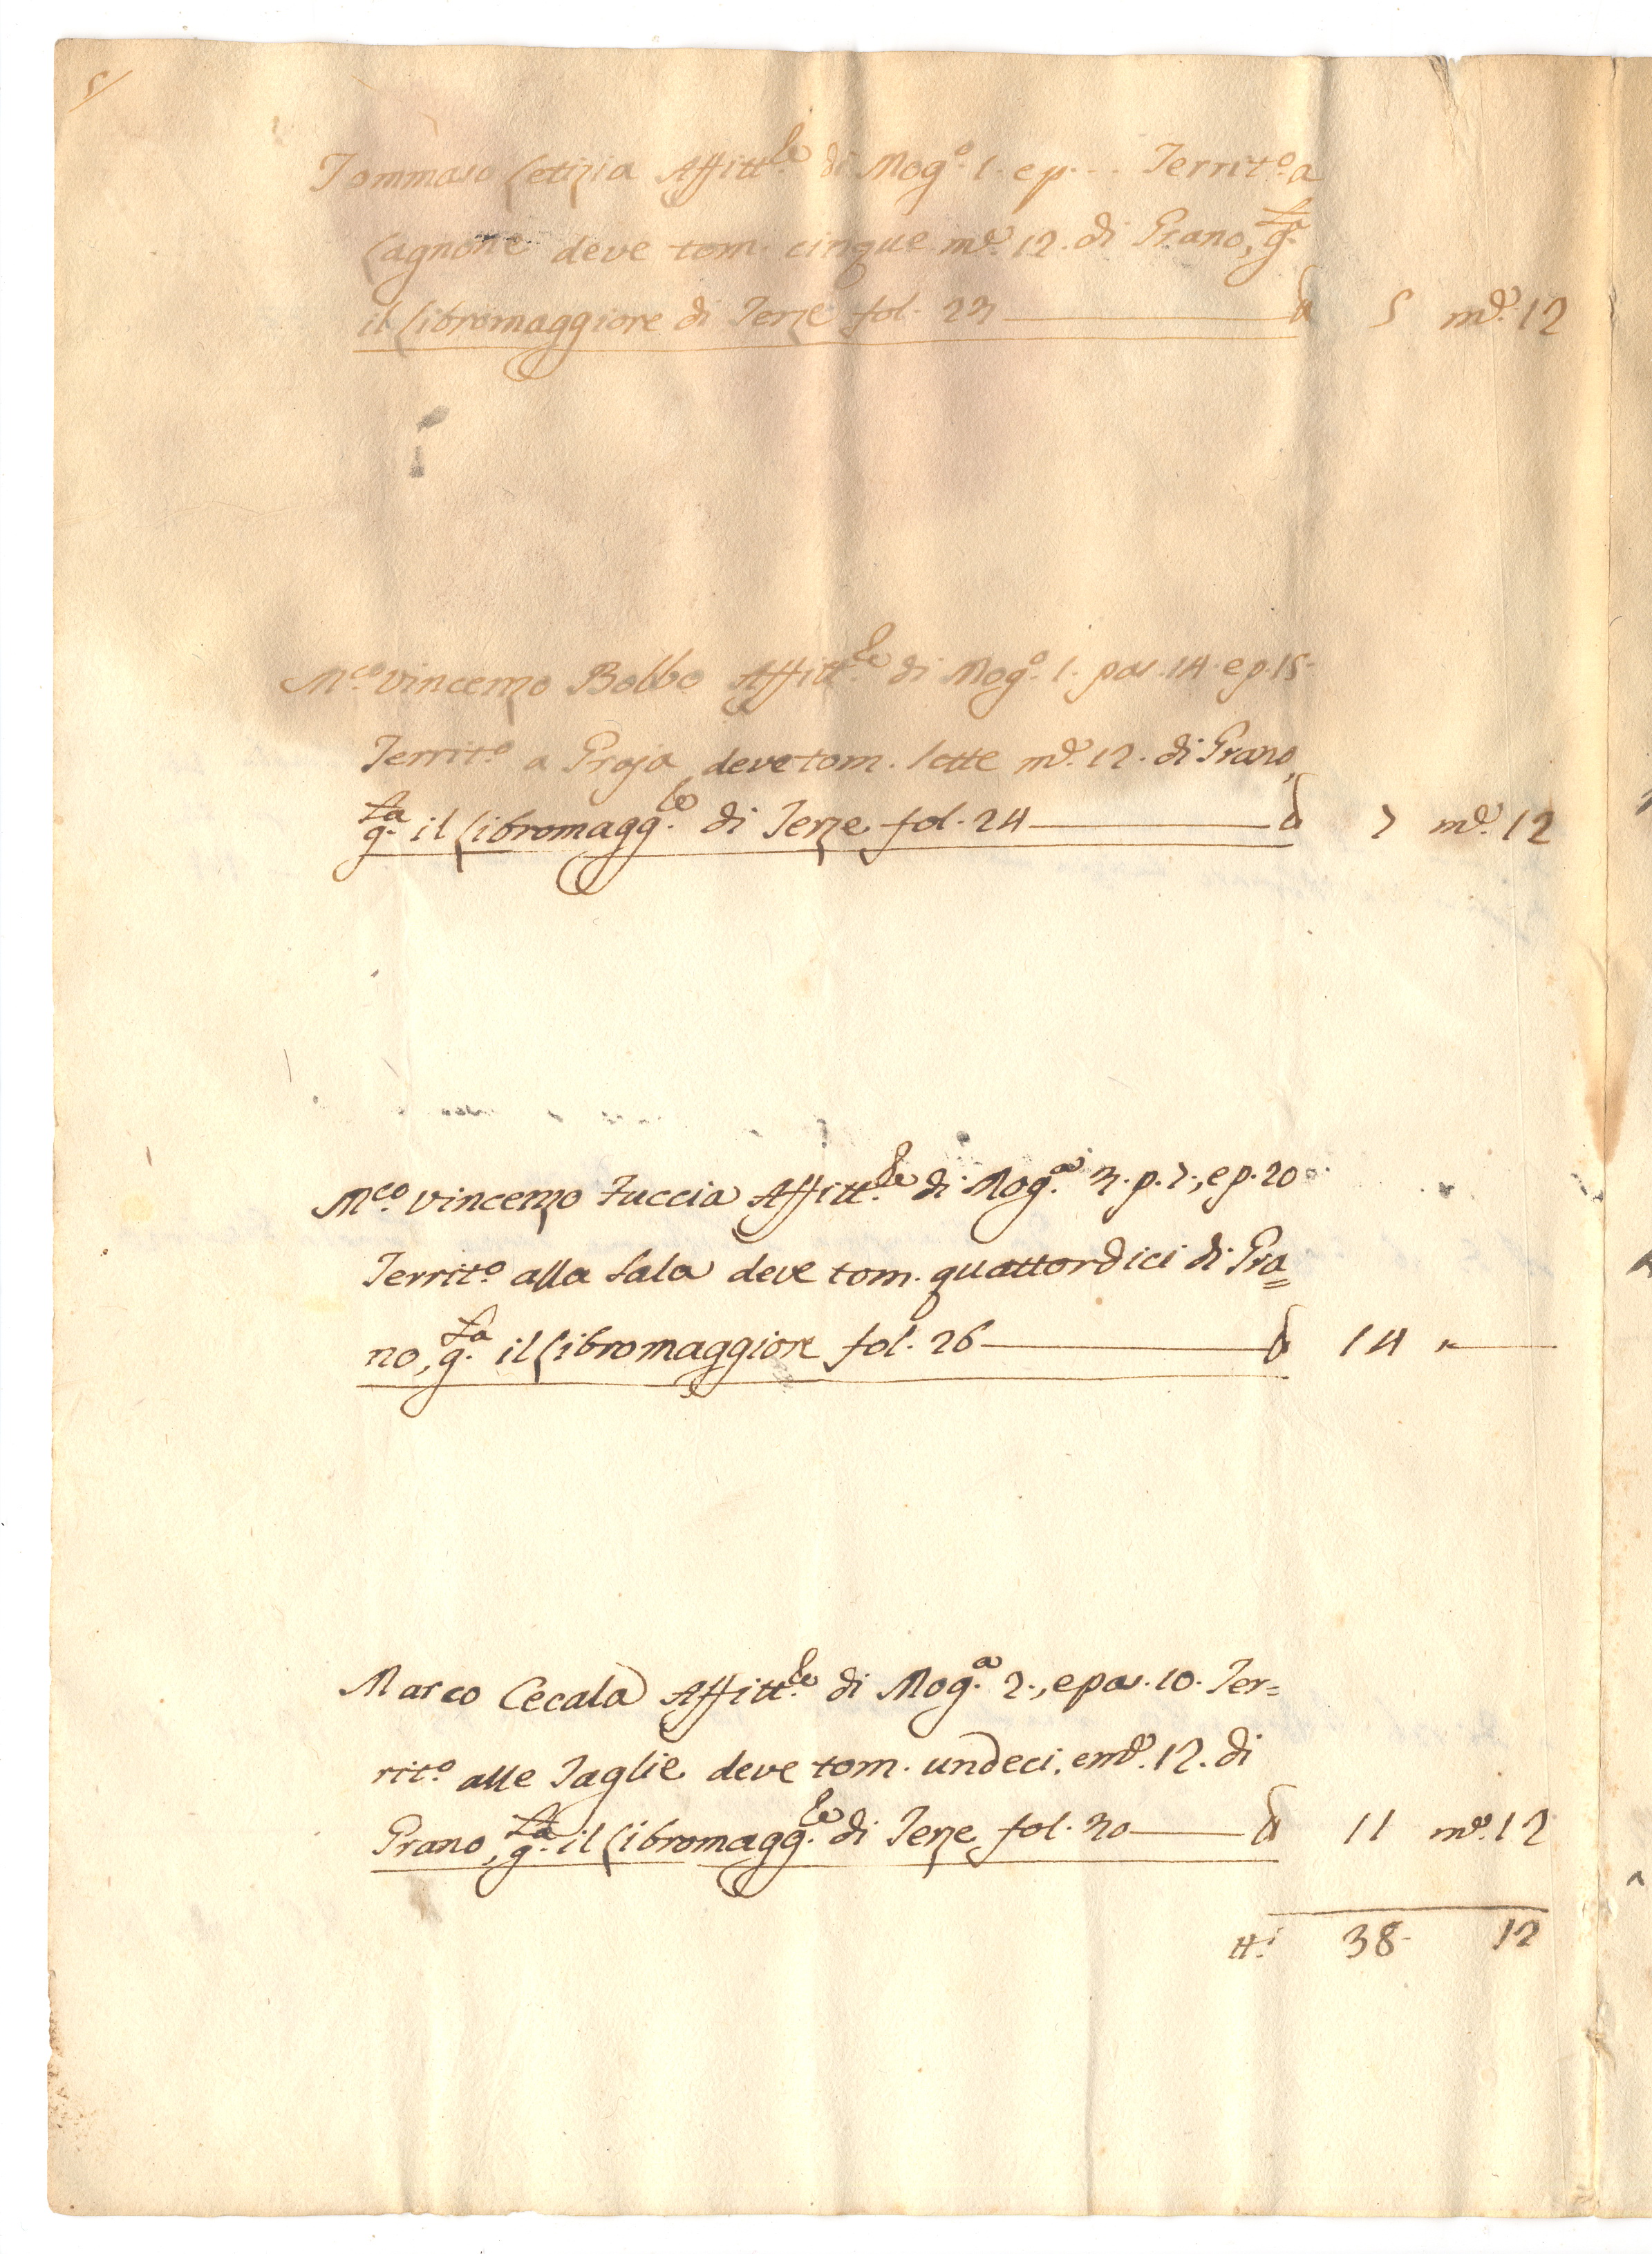 5/
Tommaso Letizia Affitt.le di Mog.o 1. e p. ... Territ.o a
Cagnone deve tom. cinque m.e 12. di Grano, g.ta
il Libromaggiore di Terze fol. 23 — d 5 m.e 12
M.co Vincenzo Bobbo Affitt.le di Mog.o 1. pas. 14. e p. 15.
Territ.o a Proja deve tom. sette m.e 12. di Grano,
g.ta il Libromagg.le di Terze fol. 24 — d 7 m.e 12
M.co Vincenzo Fuccia Affitt.le di Mog.a 3. p. 7., e p. 20.
Territ.o alla Sala deve tom. quattordici di Gra=
no, g.ta il Libromaggiore fol. 26 — d 14 " —
Marco Cecala Affitt.le di Mog.a 2., e pas. 10. Ter=
rit.o alle Taglie deve tom. undeci, e m.e 12. di
Grano, g.ta il Libromagg.le di Terze fol. 30 — d 11 m.e 12
38- 12